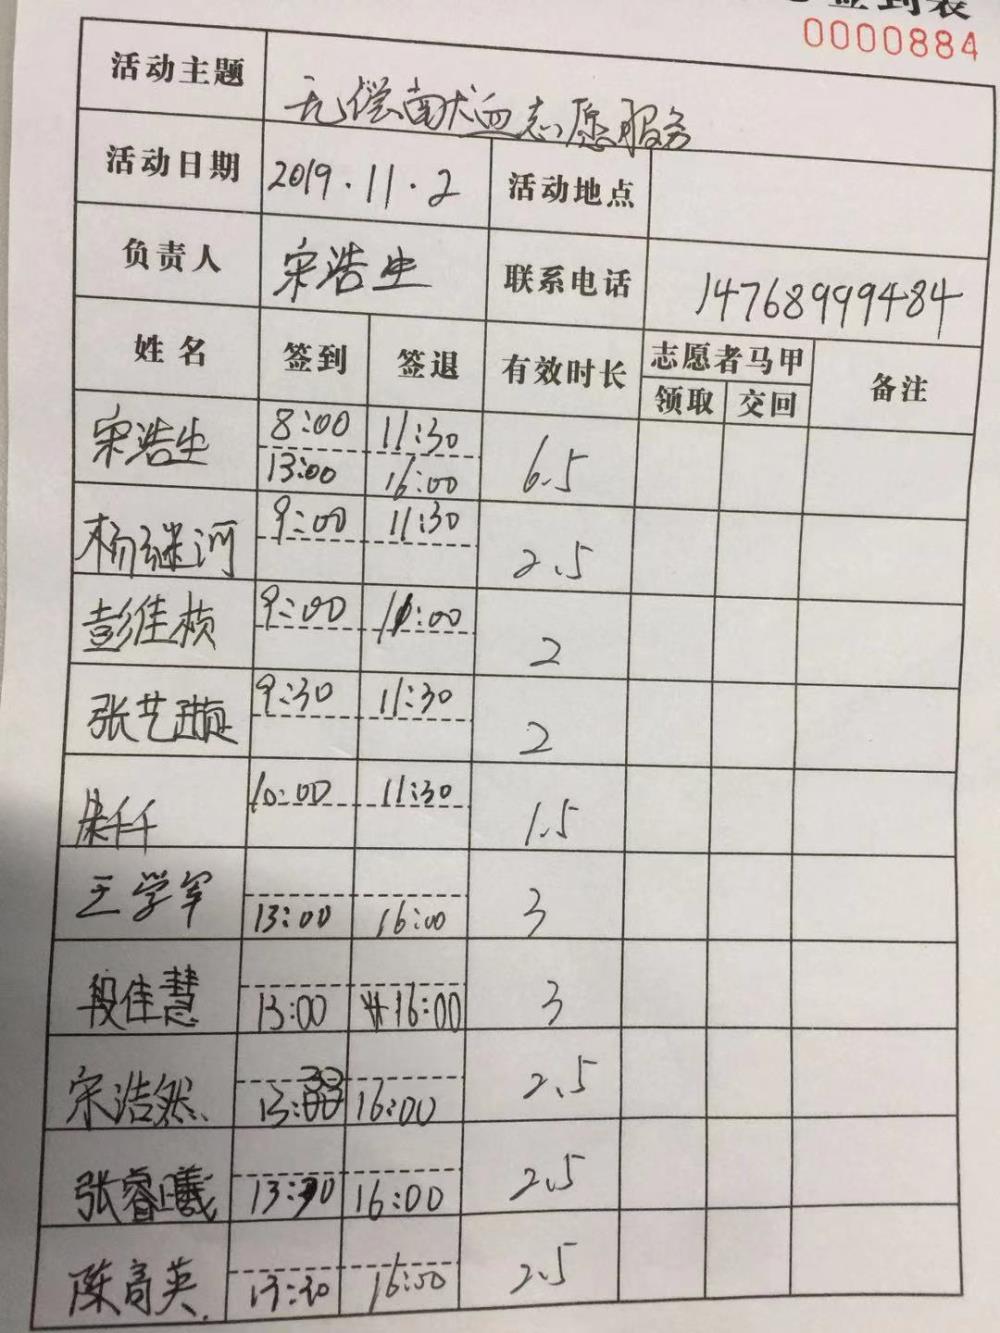 签到表
0000884
活动主题 无偿献血志愿服务
活动日期 2019.11.2 活动地点
负责人 宋浩生 联系电话 14768999484
姓名 签到 签退 有效时长 志愿者马甲 备注
领取 交回
宋浩生 8:00 11:30 6.5
13:00 16:00
杨继河 9:00 11:30 2.5
彭佳桢 9:00 11:00 2
张艺璇 9:30 11:30 2
朱千千 10:00 11:30 1.5
王学军 13:00 16:00 3
段佳慧 13:00 16:00 3
宋浩然 13:30 16:00 2.5
张睿曦 13:30 16:00 2.5
陈高英 13:30 16:00 2.5